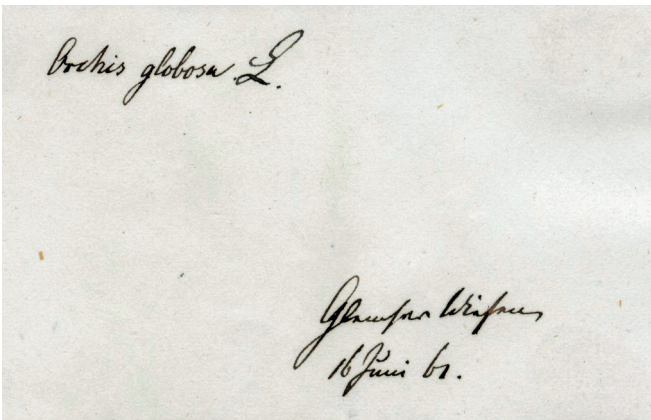 Orchis globosa L.
Glemser Wiesen
16 Juni 61.